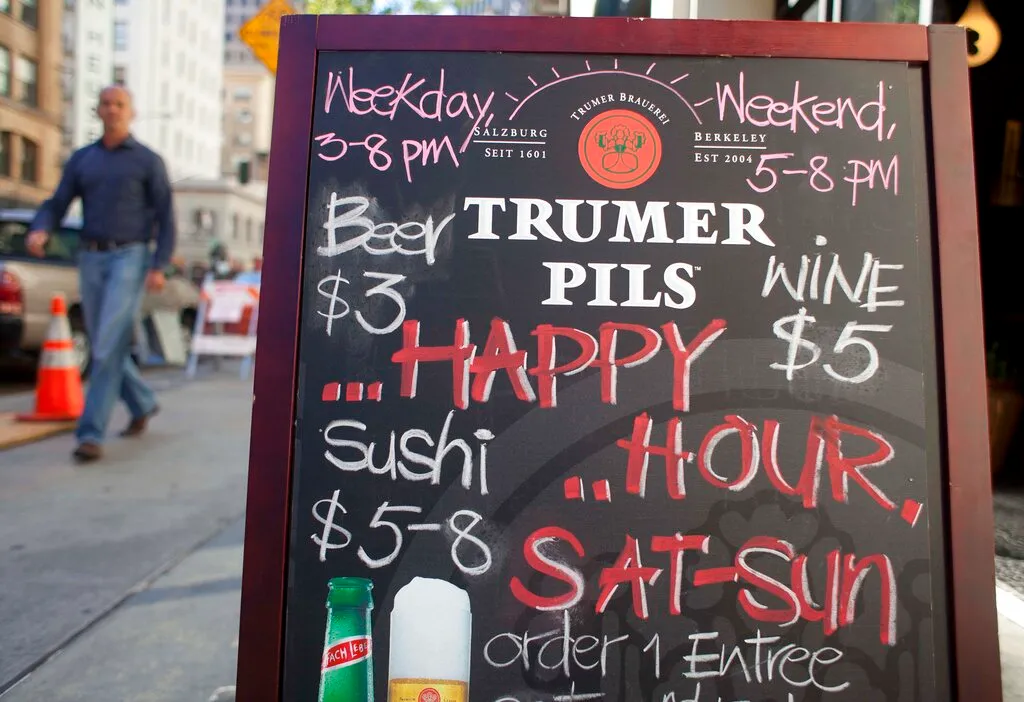 Weekday,
3-8 pm
TRUMER BRAUEREI
SALZBURG
SEIT 1601
BERKELEY
EST 2004
Weekend,
5-8 PM
TRUMER
PILS™
Beer
$3
WiNE
$5
...HAPPY
..HOUR.
Sushi
$5-8
SAT-Sun
order 1 Entree